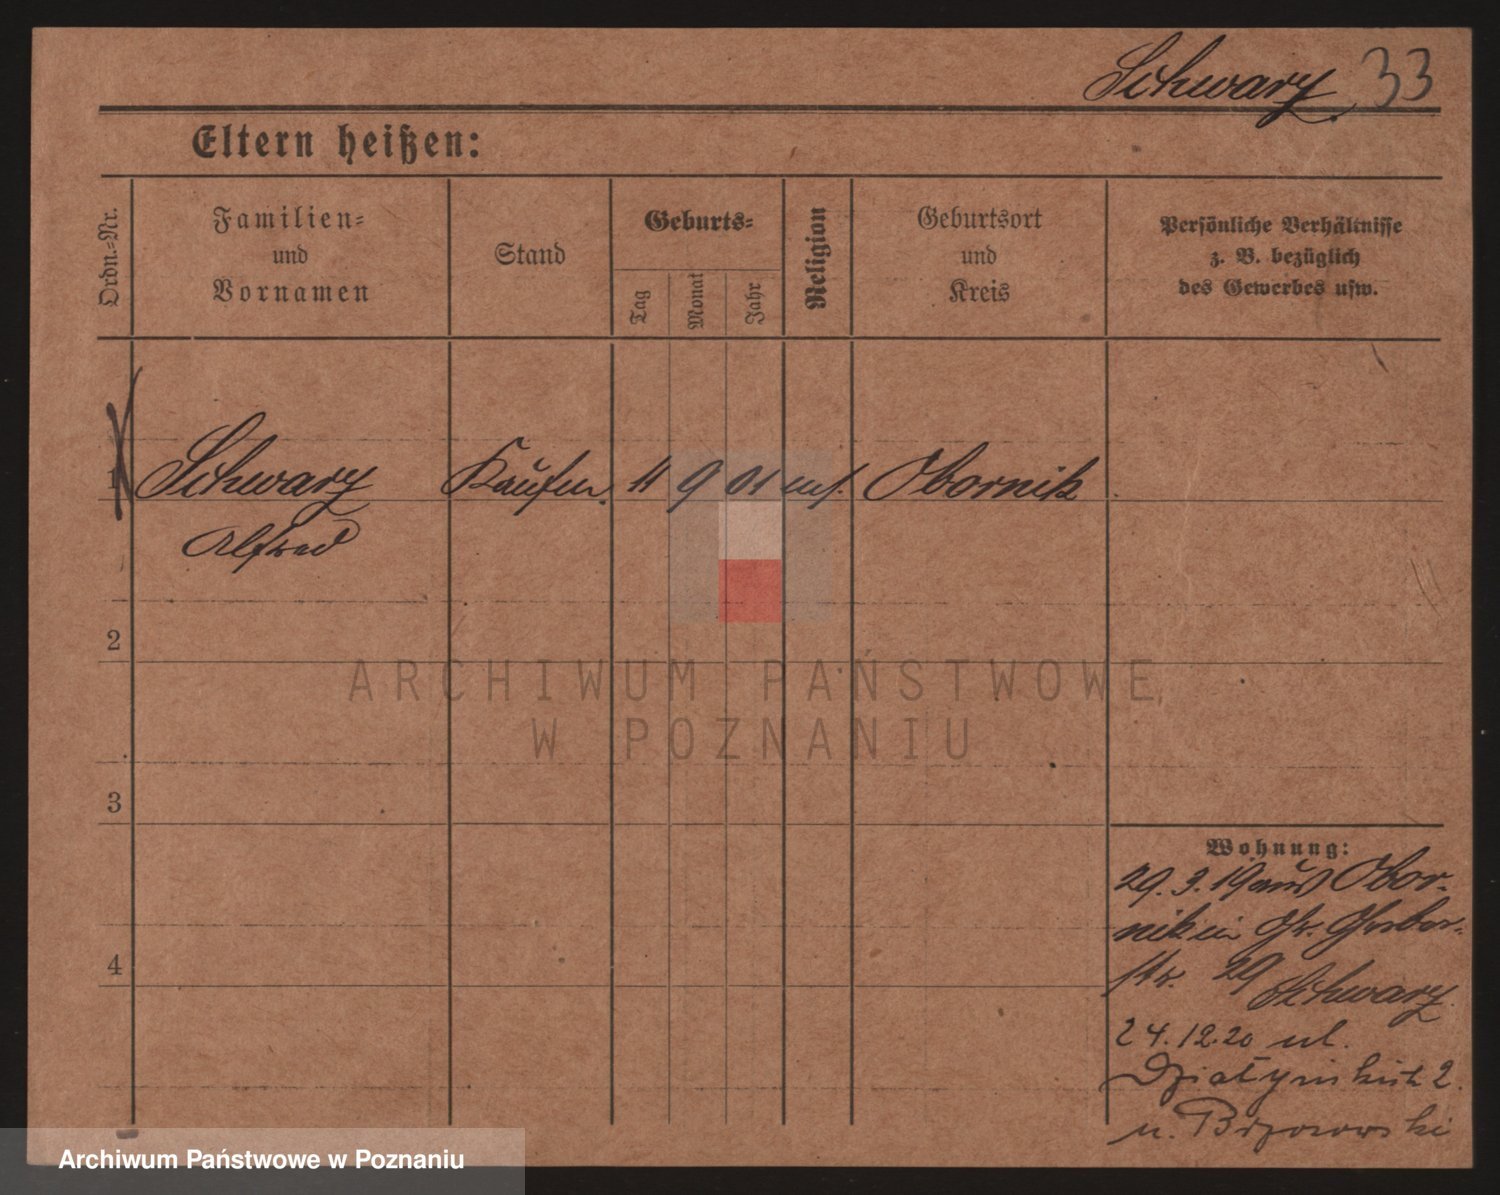 Schwarz. 33
Eltern heißen:
Ordn.-Nr.
Familien-
und
Vornamen
Stand
Geburts-
Tag
Monat
Jahr
Religion
Geburtsort
und
Kreis
Persönliche Verhältnisse
z. B. bezüglich
des Gewerbes usw.
1 Schwarz Kaufm. 11 9 01 Obornik
Alfred
2
3
4
ARCHIWUM PAŃSTWOWE
W POZNANIU
Wohnung:
29. 3. 19 aus Obor-
nik in Gr. Gerber-
str. 29 Schwarz.
24. 12. 20 ul.
Działyńskich 2.
u. Brzozowski
Archiwum Państwowe w Poznaniu